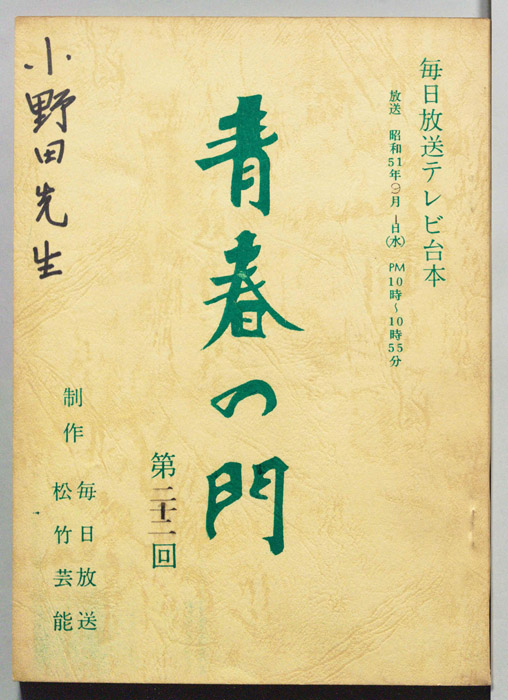 毎日放送テレビ台本
放送 昭和51年9月1日(水) PM10時～10時55分
青春の門
第二十二回
制作
毎日放送
松竹芸能
小野田先生